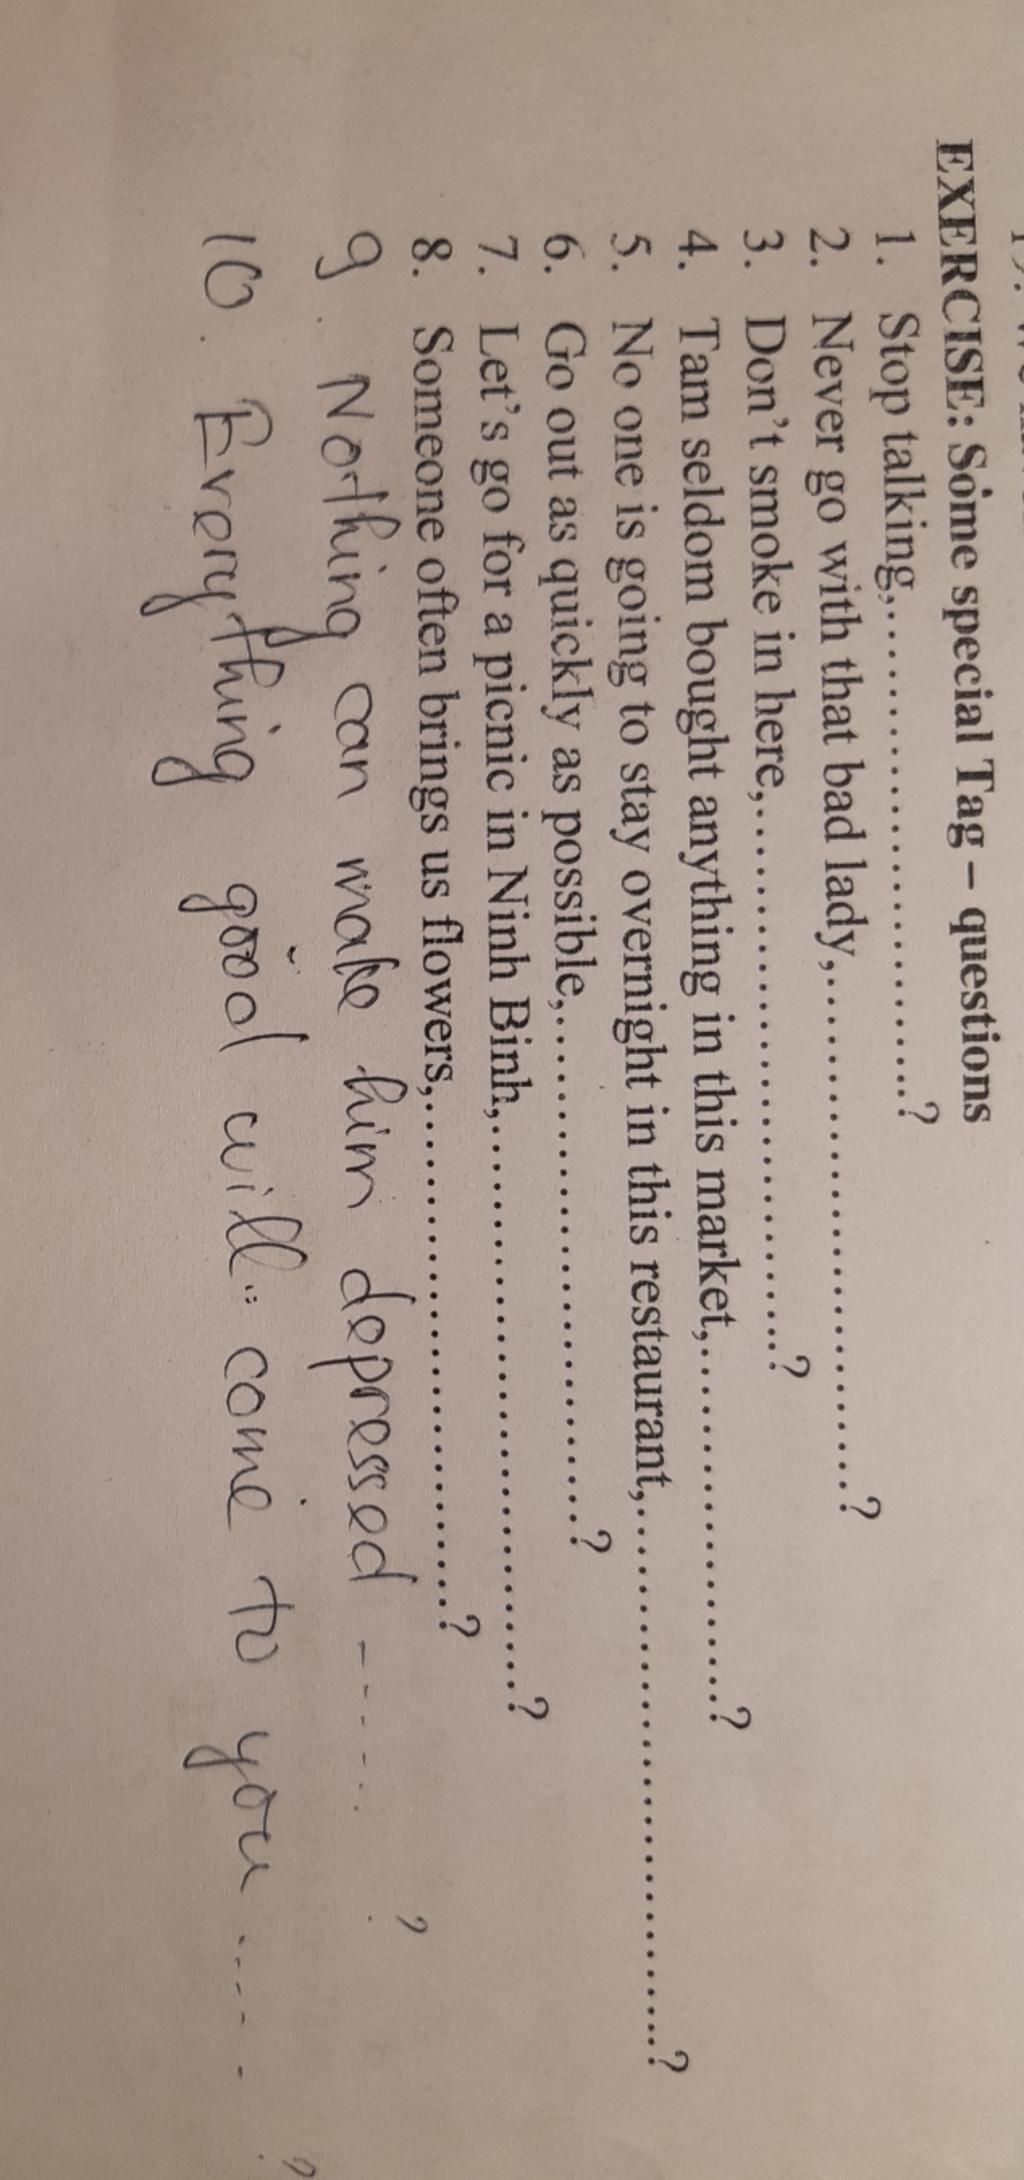 EXERCISE: Some special Tag – questions
1. Stop talking,..............................?
2. Never go with that bad lady,..............................?
3. Don't smoke in here,..............................?
4. Tam seldom bought anything in this market,....................?
5. No one is going to stay overnight in this restaurant,..............................?
6. Go out as quickly as possible,..............................?
7. Let's go for a picnic in Ninh Binh,..............................?
8. Someone often brings us flowers,..............................?
9. Nothing can make him depressed .....?
10. Everything good will come to you .....?